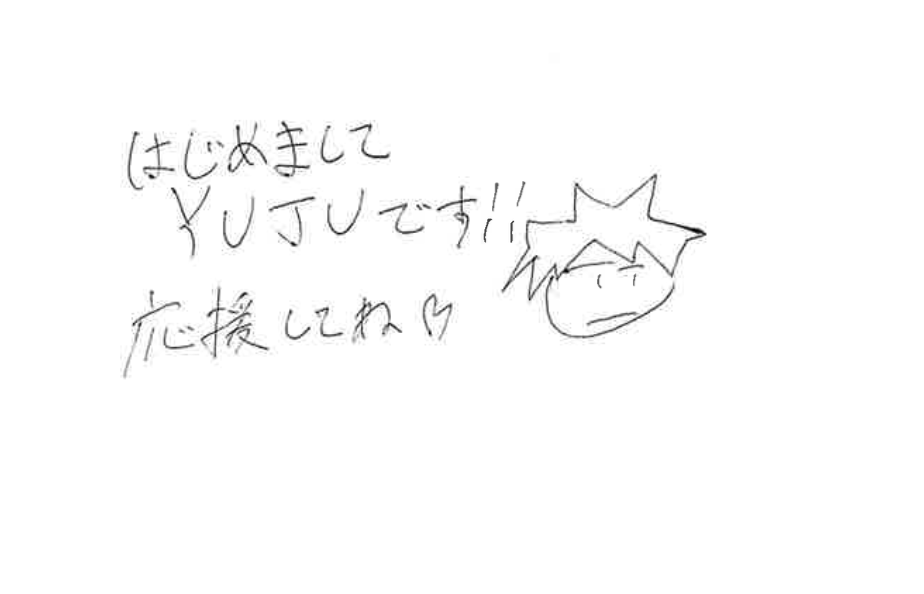 はじめまして
YUJUです!!
応援してね♡